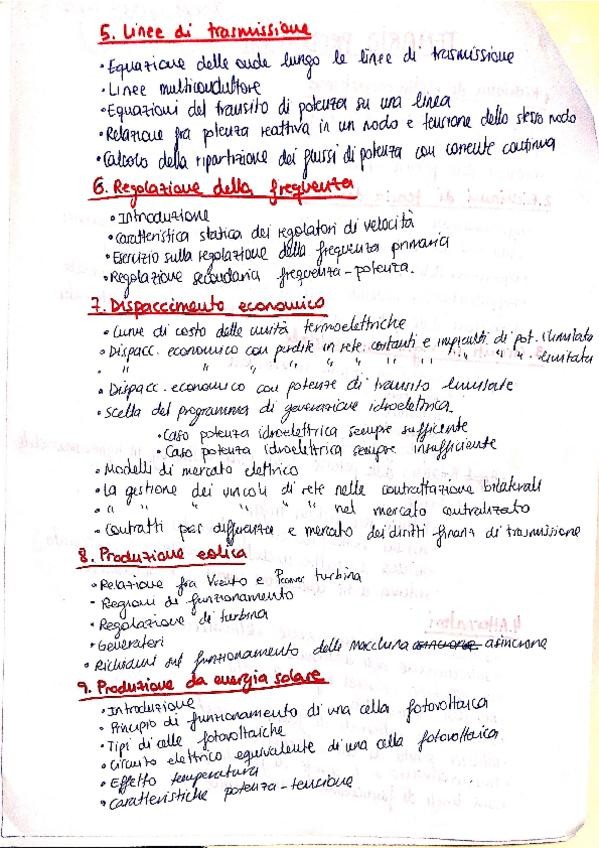 5. Linee di trasmissione
• Equazione delle onde lungo le linee di trasmissione
• Linee multiconduttore
• Equazioni del transito di potenza su una linea
• Relazione fra potenza reattiva in un nodo e tensione dello stesso nodo
• Calcolo della ripartizione dei flussi di potenza con corrente continua
6. Regolazione della frequenza
• Introduzione
• Caratteristica statica dei regolatori di velocità
• Esercizio sulla regolazione della frequenza primaria
• Regolazione secondaria frequenza-potenza.
7. Dispaccimento economico
• Curve di costo delle unità termoelettriche
• Dispacc. economico con perdite in rete costanti e impianti di pot. illimitata
• " " " " " " " " " " " limitata
• Dispacc. economico con potenze di transito limitate
• Scelta del programma di generazione idroelettrica.
• Caso potenza idroelettrica sempre sufficente
• Caso potenza idroelettrica sempre insufficiente
• Modelli di mercato elettrico
• La gestione dei vincoli di rete nelle contrattazione bilaterali
• " " " " " " nel mercato centralizzato
• Contratti per differenza e mercato dei diritti finanz. di trasmissione
8. Produzione eolica
• Relazione fra Vvento e Pmax turbina
• Regioni di funzionamento
• Regolazione di turbina
• Generatori
• Richiami sul funzionamento delle macchina asincrone asincrone
9. Produzione da energia solare
• Introduzione
• Principio di funzionamento di una cella fotovoltaica
• Tipi di celle fotovoltaiche
• Circuito elettrico equivalente di una cella fotovoltaica
• Effetto temperatura
• Caratteristiche potenza-tensione